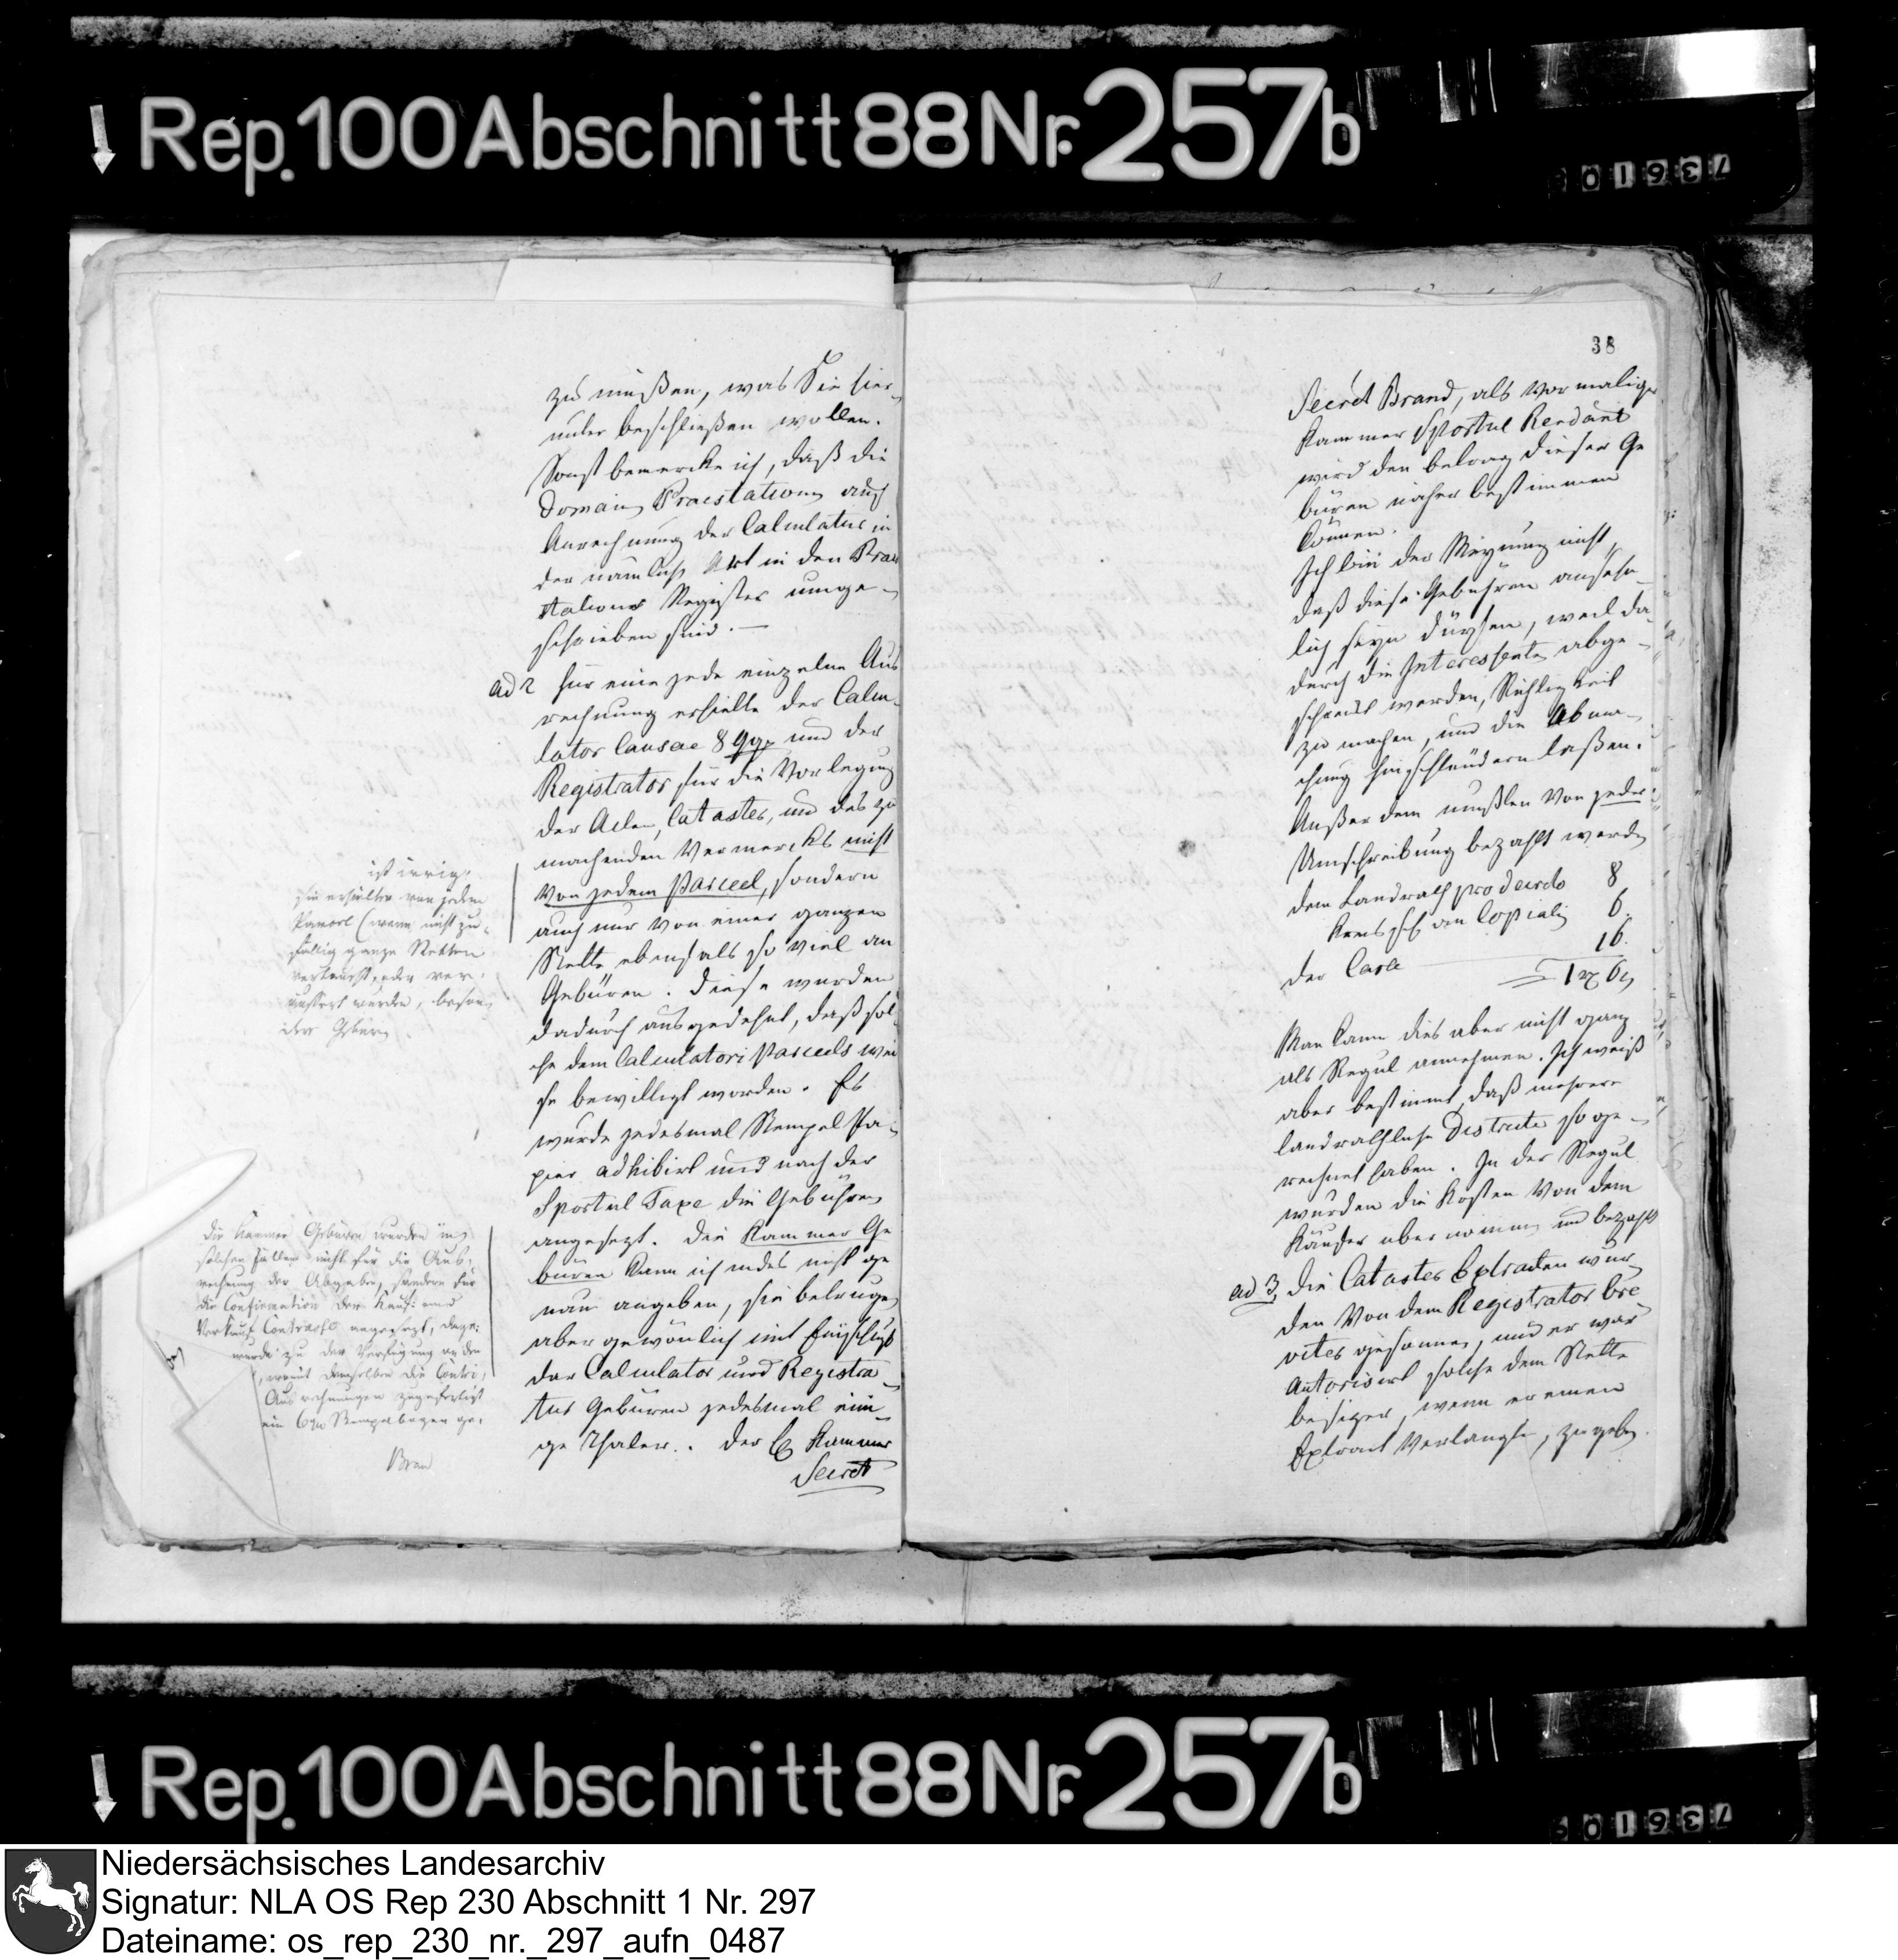 Rep. 100 Abschnitt 88 Nr. 257b
zu müßen, was Sie hier-
unter beschließen wollen.
Sonst bemercke ich, daß die
Domain Praestationen auch
Anrechnung der Calculatur in
der nämlichen Art in den Prae
stations Register umge-
schrieben sind. —
ad 2 Für eine jede einzelne Aus
rechnung erhielte der Calcu-
lator Causae 8 ggr und der
Registrator für die Vorlegung
der Acten, Cataster, und des zu
machenden Vermercks nicht
von jedem Parceel, sondern
auch nur von einer ganzen
Stette ebenfals so viel an
Gebüren. Diese wurden
dadurch ausgedehnt, daß sol-
che dem Calculatori Parceels wei
se bewilligt worden. Es
wurde jedesmal Stempel Pa-
pier adhibirt und nach der
Sportul Taxe die Gebühren
angesezt. Die Kammer Ge
büren kann ich indes nicht ge
nau angeben, sie betrugen
aber gewönlich mit Einschluß
der Calculator und Registra-
tur Gebüren jedesmal eini-
ge Thaler. Der Kammer
Secret
ist irrig.
sie erhielten von jedem
Parcel (wenn nicht zu-
fällig ganze Stetten
verkauft oder ver-
äussert wurden, beson-
dere Gebüren
Die Kammer Gebüren wurden in
solchen Fällen nicht für die Aus-
rechnung der Abgaben, sondern für
die Confirmation der Kauf und
Verkauf Contracte angesezt, dage-
wurde zu der Verfügung an den
womit denselben die Contri-
Ausrechnungen zugefertigt
ein 6 ggr Stempelbogen ge-
Bran
38
Secret Brand, als vormaliger
Kammer Sportul Rendant
wird den betrag dieser Ge
büren näher bestimmen
können.
Ich bin der Meynung nicht,
daß diese Gebühren ansehn-
lich seyn dürfen, weil da-
durch die Interessenten abge-
schreckt werden, Richtigkeit
zu machen, und die Abma-
chung hinschlendern laßen.
Außerdem mußten von jeder
Umschreibung bezahlt werden
dem Landrath pro decreto 8
Kreis an Copialien 6.
der Casse 16.
= 1 rt 6
Man kann dies aber nicht ganz
als Regul annehmen. Ich weiß
aber bestimmt, daß mehrere
landräthliche Districte so ge-
rechnet haben. In der Regul
wurden die Kosten von dem
Käufer übernommen und bezahlt
ad 3, Die Cataster Extracten wur
den von dem Registrator bre
viter genommen, und er war
autorisirt solche dem Stette
besizer, wenn er einen
Extract verlangte, zu geben.
Rep. 100 Abschnitt 88 Nr. 257b
Niedersächsisches Landesarchiv
Signatur: NLA OS Rep 230 Abschnitt 1 Nr. 297
Dateiname: os_rep_230_nr._297_aufn_0487